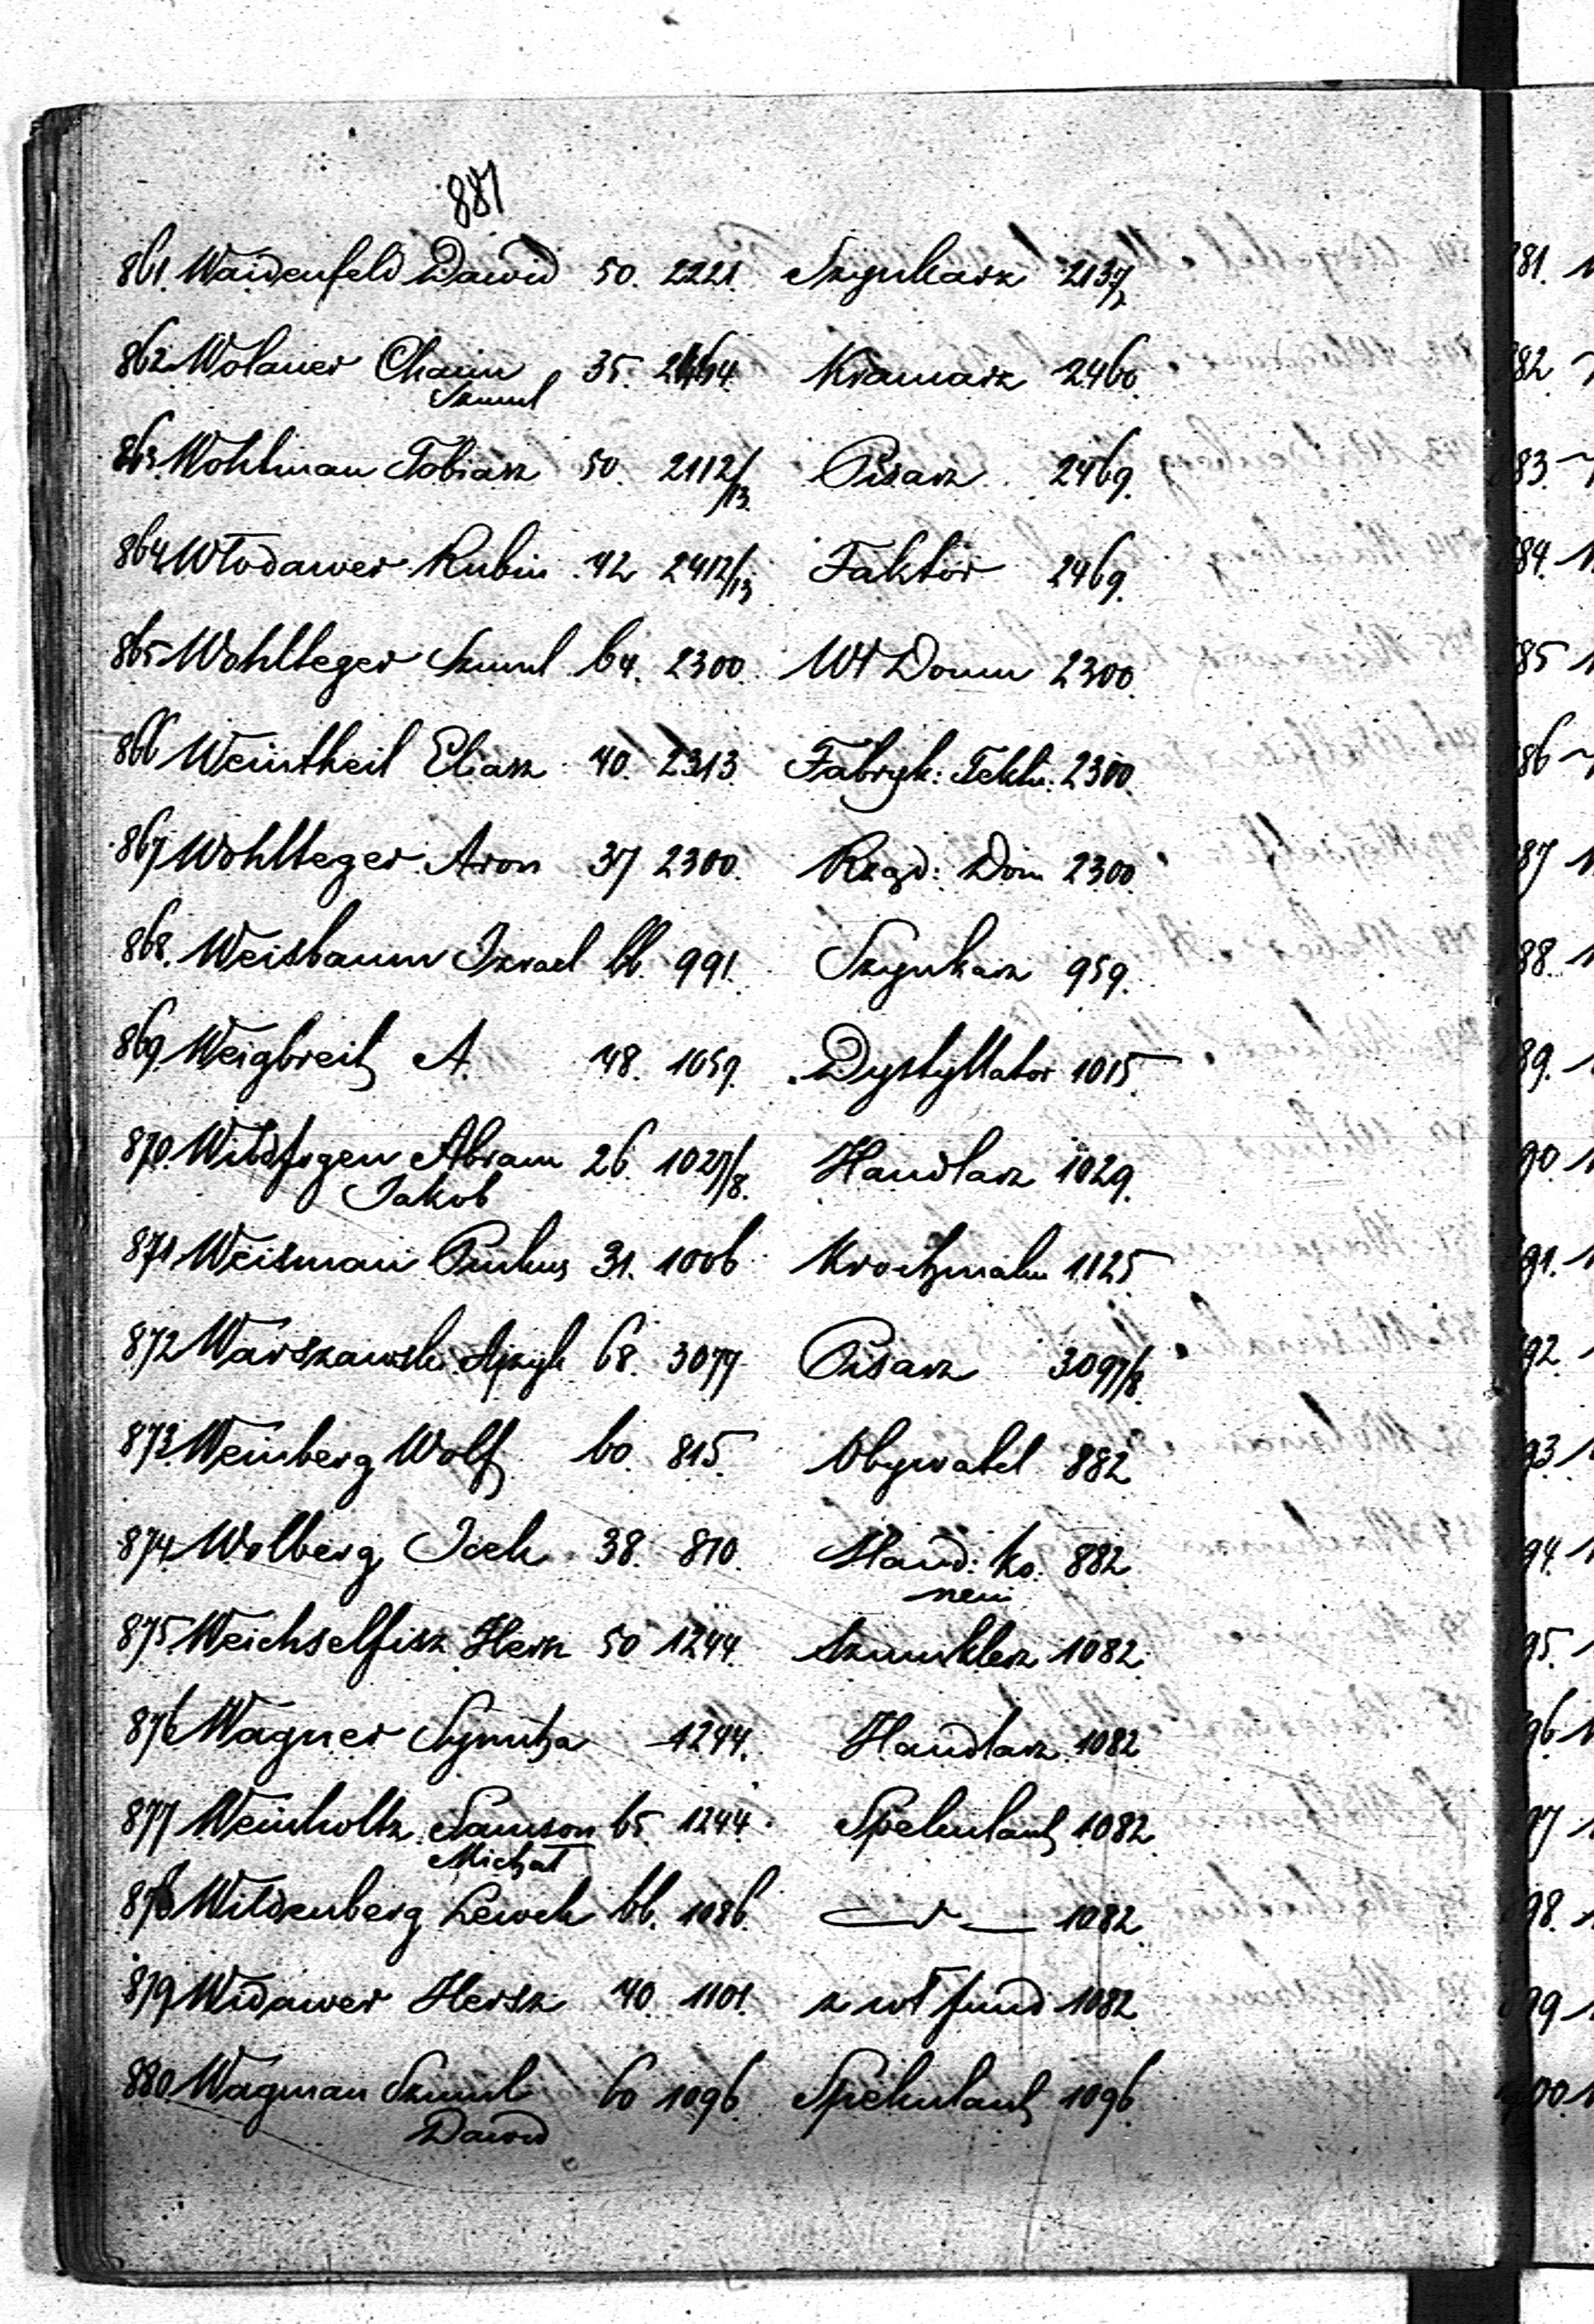 881
861. Waidenfeld Dawid 50. 2221. Szynkarz 2137/
862 Wolauer Chaim 35. 2464 Kramarz 2460.
Szmul
863. Wohlman Tobiasz 50. 2112/13. Pisarz 2469.
864 Włodawer Rubin 42 2412/13 Faktor 2469.
865 Wohlleger Szmul 64. 2300. Wł Domu 2300.
866 Weintheil Eliasz 40. 2313 Fabryk: Tektu: 2300.
867 Wohlleger Aron 37 2300. Rzgd: Dom 2300.
868. Weisbaum Izrael 66. 991. Szynkarz 959.
869. Weigbreit A. 48. 1059. Dystyllator 1015
870. Abram 26 1027/8. Handlarz 1029.
Jakob
871 Weisman Pinkus 31. 1006. Krochmaln 1125
872 Warszawski Ajzyk 68. 3077 Pisarz 3097/8.
873. Weinberg Wolf 60. 815. Obywatel 882
874. Wolberg Icek 38. 810. Hand: ko: 882
remi
875. Weichselfisz Hersz 50 1244. Szmuklerz 1082.
876 Wagner 1244. Handlarz 1082
877 Weinholtz Samson 65. 1244. Spekulant 1082.
Michał
878 Wildenberg Lewek 66. 1086. —„— 1082.
879 Widawer Hersz 40. 1101. z wł fund 1082.
880. Wagman Szmul 60 1096. Spekulant 1096.
Dawid
881.
882
883.
884.
885
886
887
888.
889.
890
891.
892
893
894.
895.
896.
897
898.
899
900.